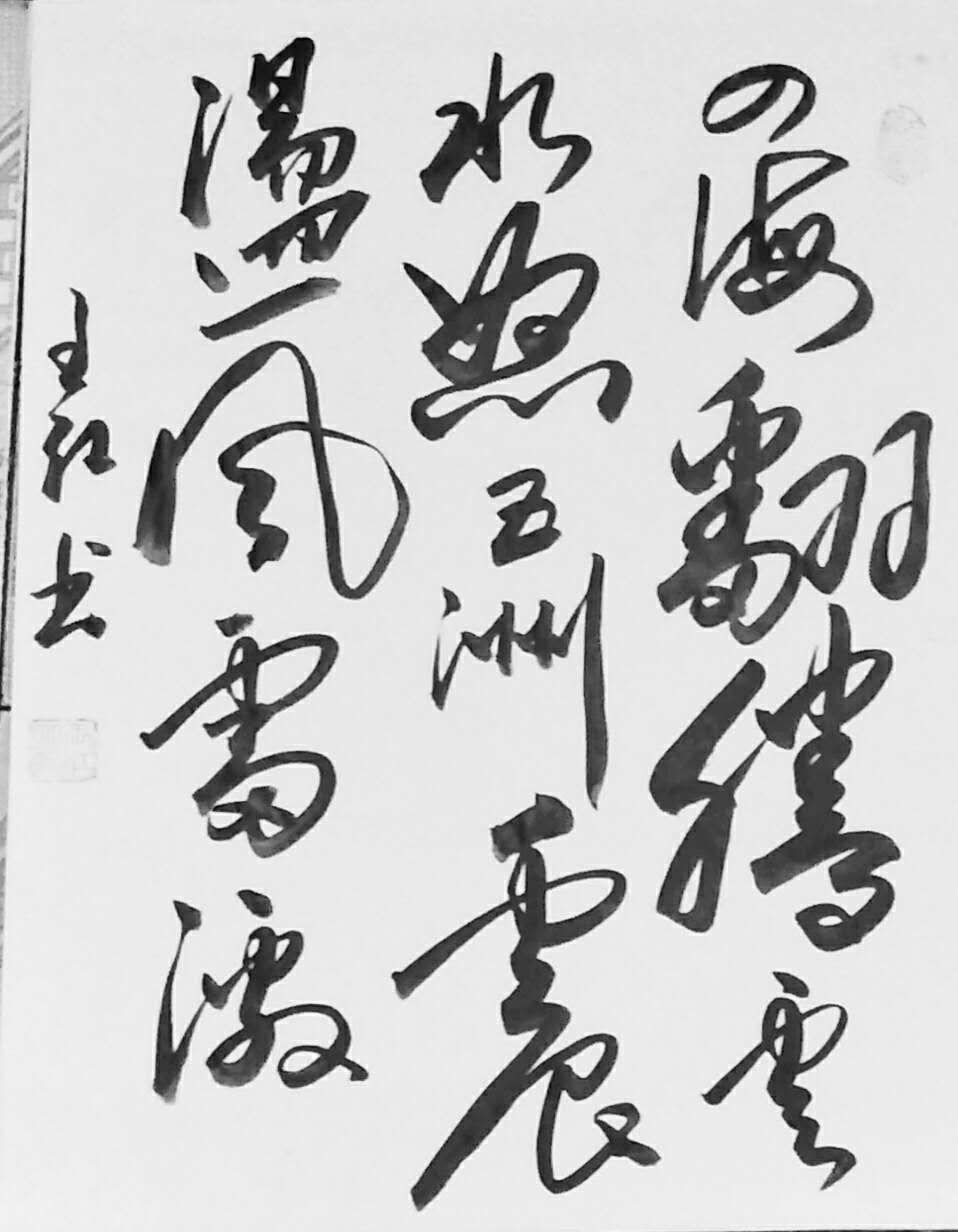 四海翻腾雲
水怒五洲震
盪風雷激
王红书